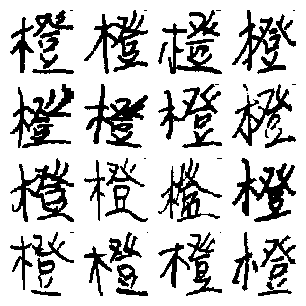 橙橙橙橙
橙橙橙橙
橙橙橙橙
橙橙橙橙